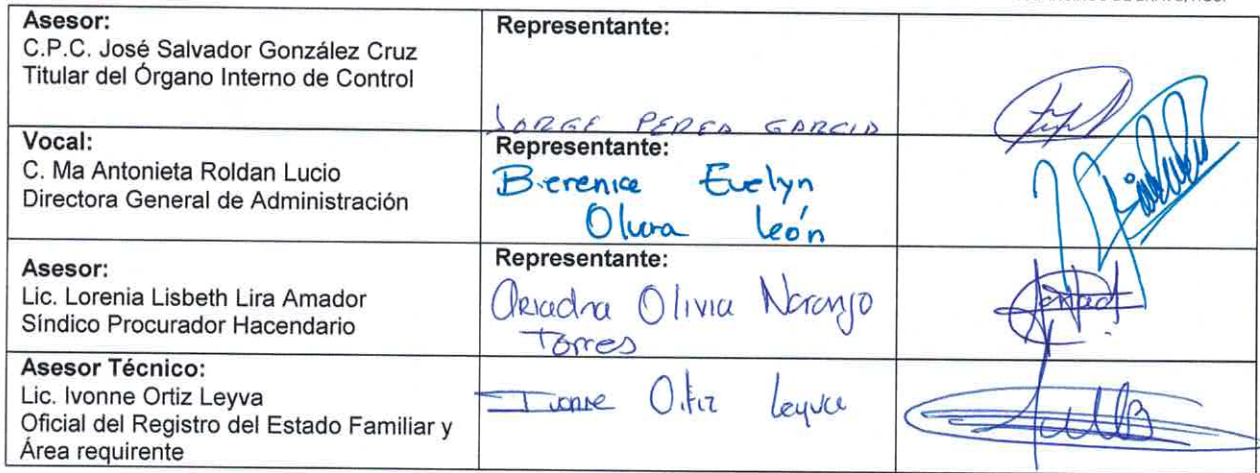 Asesor:
C.P.C. José Salvador González Cruz
Titular del Órgano Interno de Control
Representante:
JORGE PEREA GARCIA
Vocal:
C. Ma Antonieta Roldan Lucio
Directora General de Administración
Representante:
Berenice Evelyn
Olvera León
Asesor:
Lic. Lorenia Lisbeth Lira Amador
Síndico Procurador Hacendario
Representante:
Ariadna Olivia Naranjo
Torres
Asesor Técnico:
Lic. Ivonne Ortiz Leyva
Oficial del Registro del Estado Familiar y
Área requirente
Ivonne Ortiz Leyva